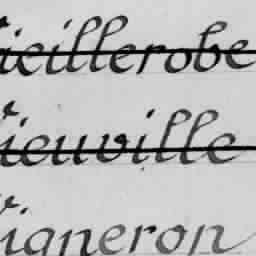 ieillerobe
ieuville
igneron